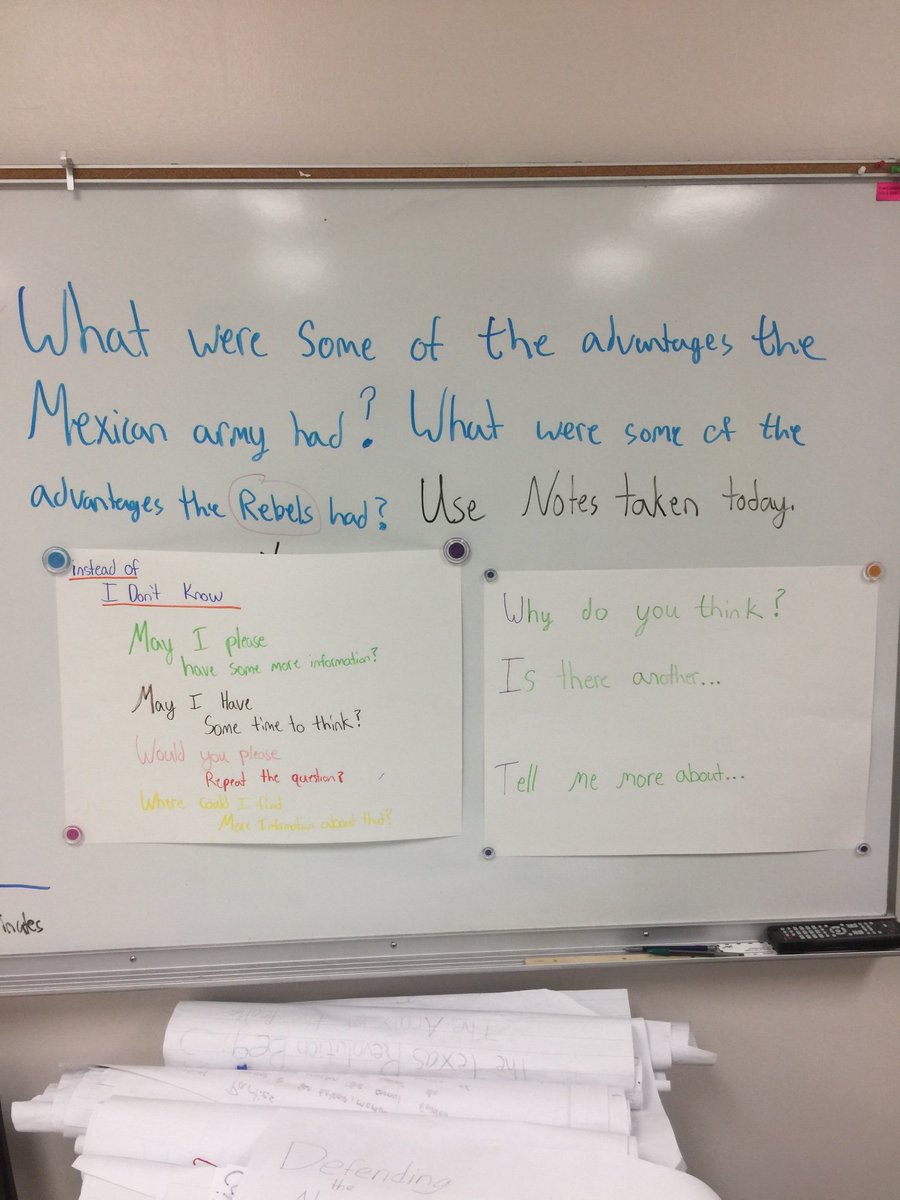 What were Some of the advantages the
Mexican army had? What were some of the
advantages the Rebels had? Use Notes taken today.
instead of
I Don't Know
May I please
have some more information?
May I Have
Some time to think?
Would you please
Repeat the question?
Where Could I find
More Information about that?
Why do you think?
Is there another...
Tell me more about...
The Texas Revolution
Defending
the